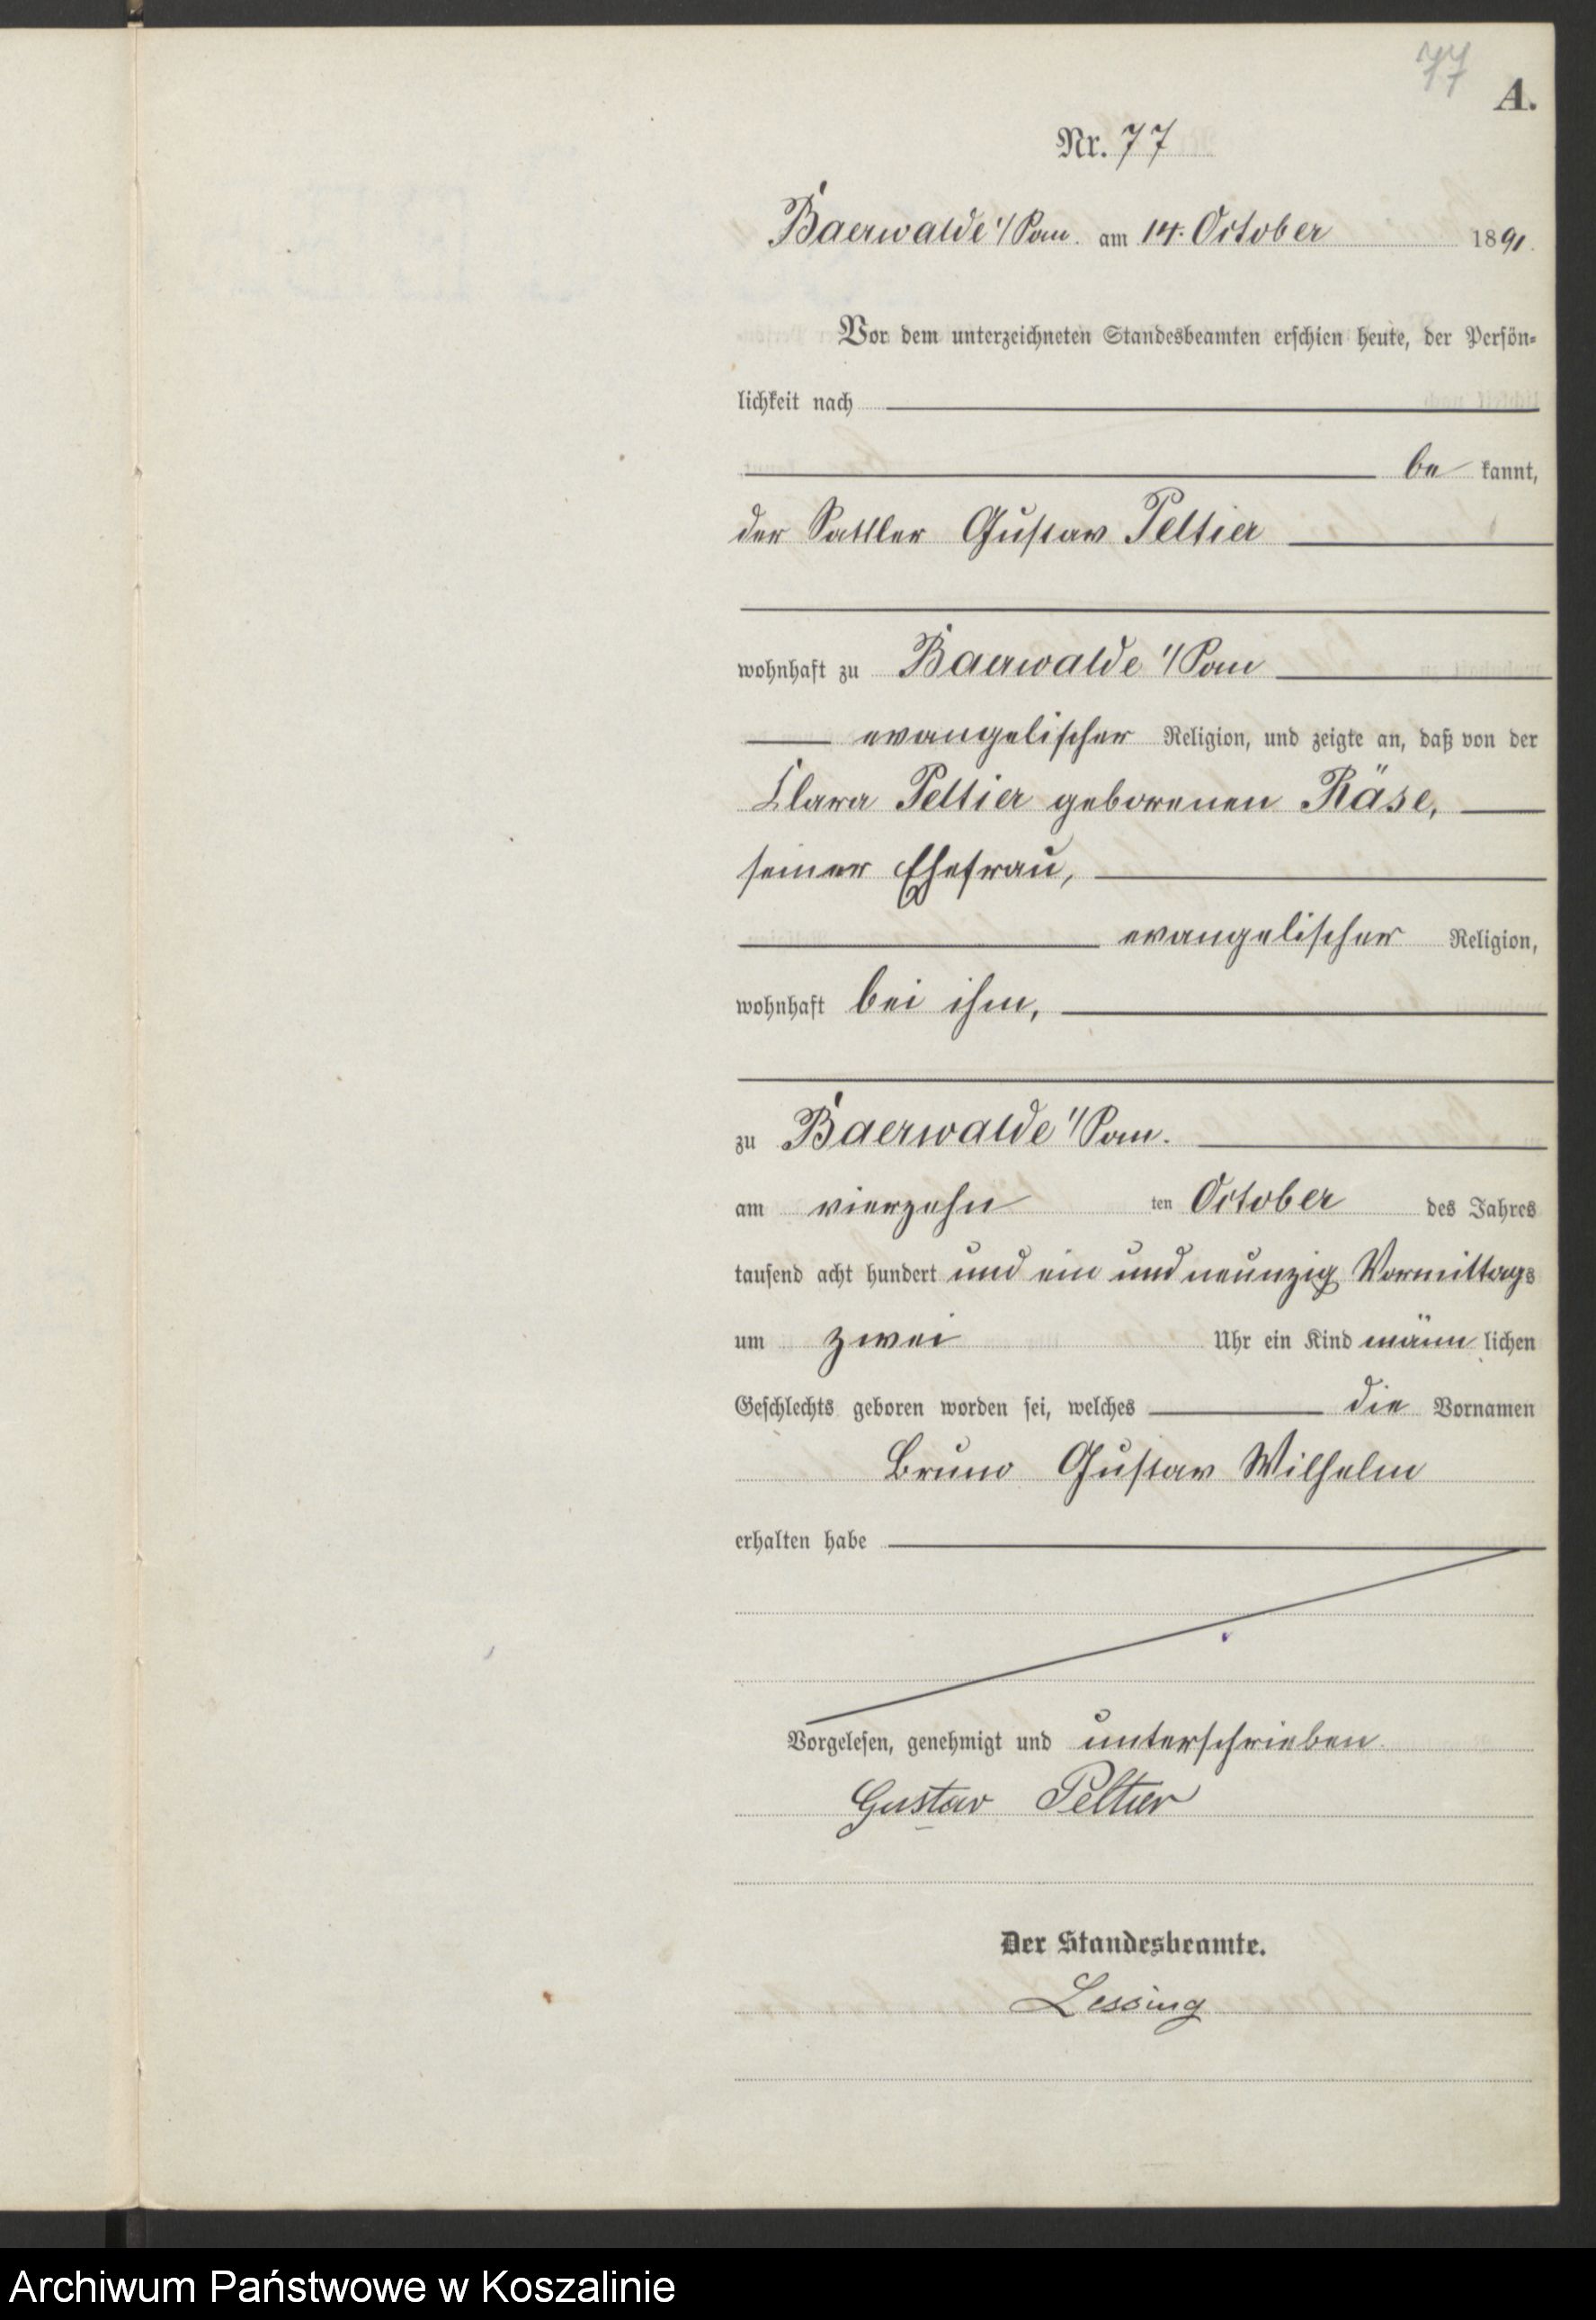 77
A.
Nr. 77
Baerwalde i/Pom. am 14. October 1891.
Vor dem unterzeichneten Standesbeamten erschien heute, der Persön-
lichkeit nach
be kannt,
der Sattler Gustav Peltier
wohnhaft zu Baerwalde i/Pom
evangelischer Religion, und zeigte an, daß von der
Clara Peltier geborenen Räse,
seiner Ehefrau,
evangelischer Religion,
wohnhaft bei ihm,
zu Baerwalde i/Pom.
am vierzehn ten October des Jahres
tausend acht hundert und ein und neunzig Vormittags
um zwei Uhr ein Kind männ lichen
Geschlechts geboren worden sei, welches die Vornamen
Bruno Gustav Wilhelm
erhalten habe
Vorgelesen, genehmigt und unterschrieben
Gustav Peltier
Der Standesbeamte.
Lessing
Archiwum Państwowe w Koszalinie